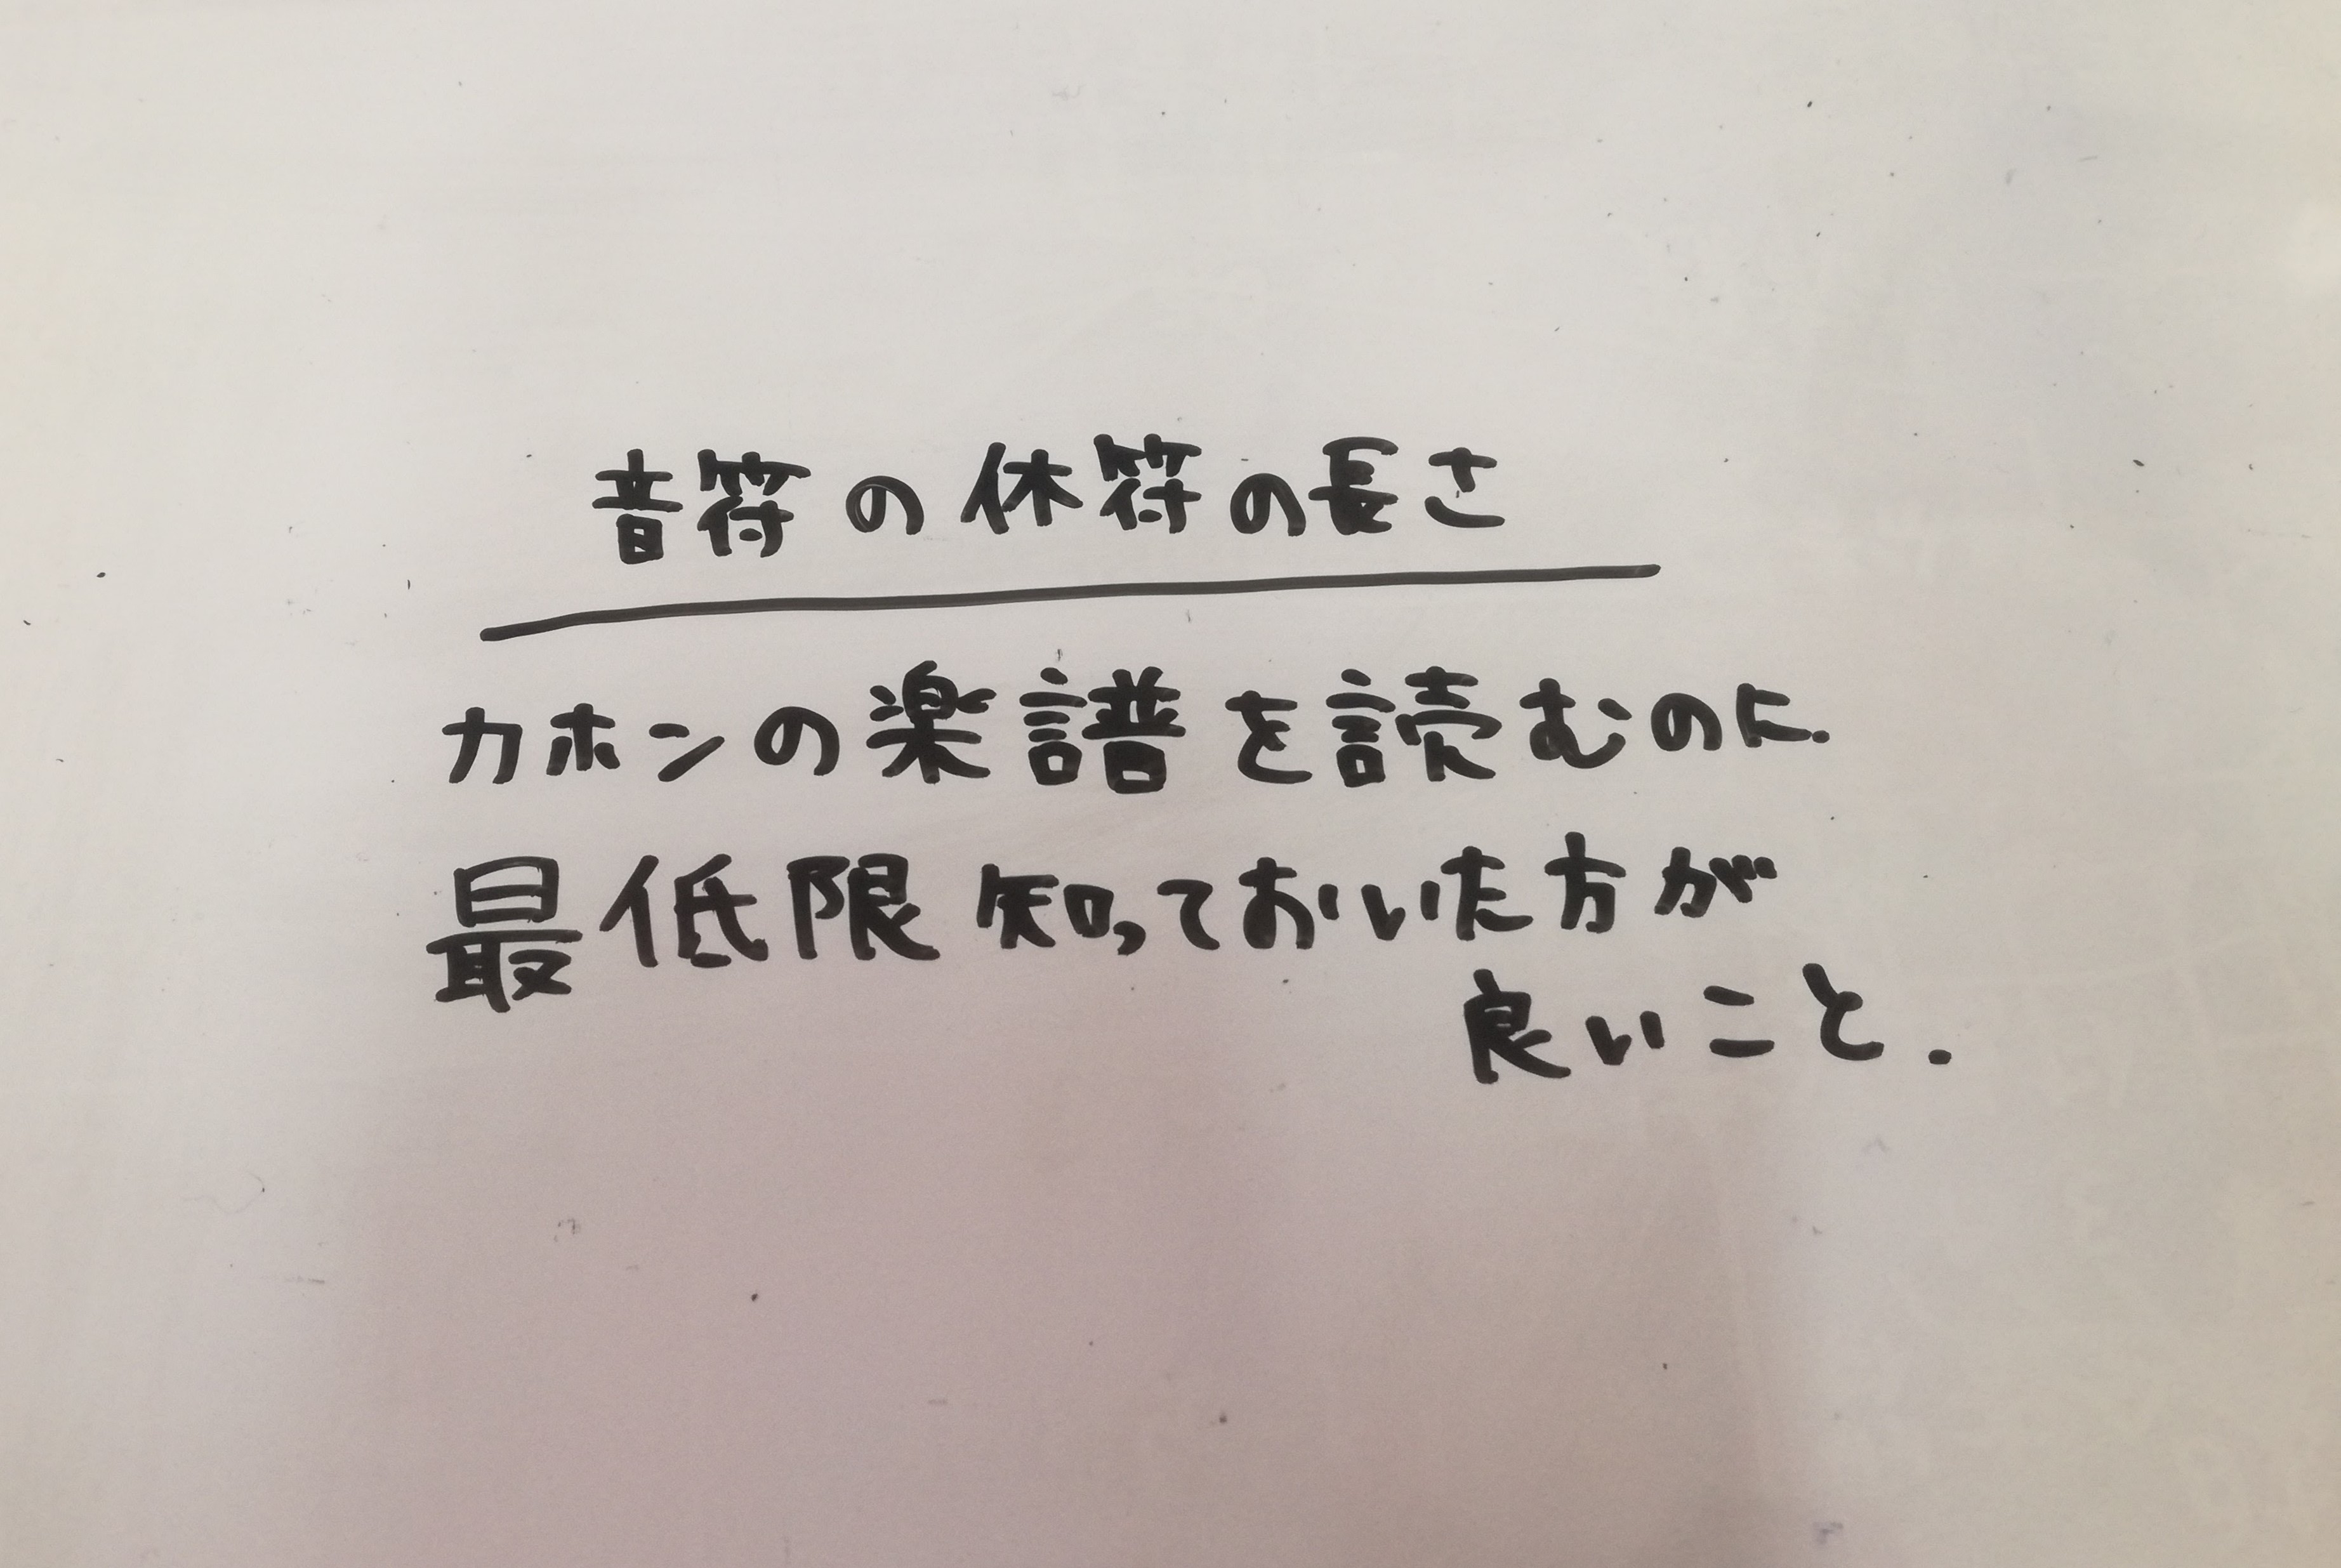 音符の休符の長さ
カホンの楽譜を読むのに.
最低限知っておいた方が
良いこと.